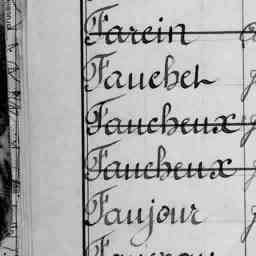 Farcin
Fauchet
Faucheux
Faucheux
Faujour